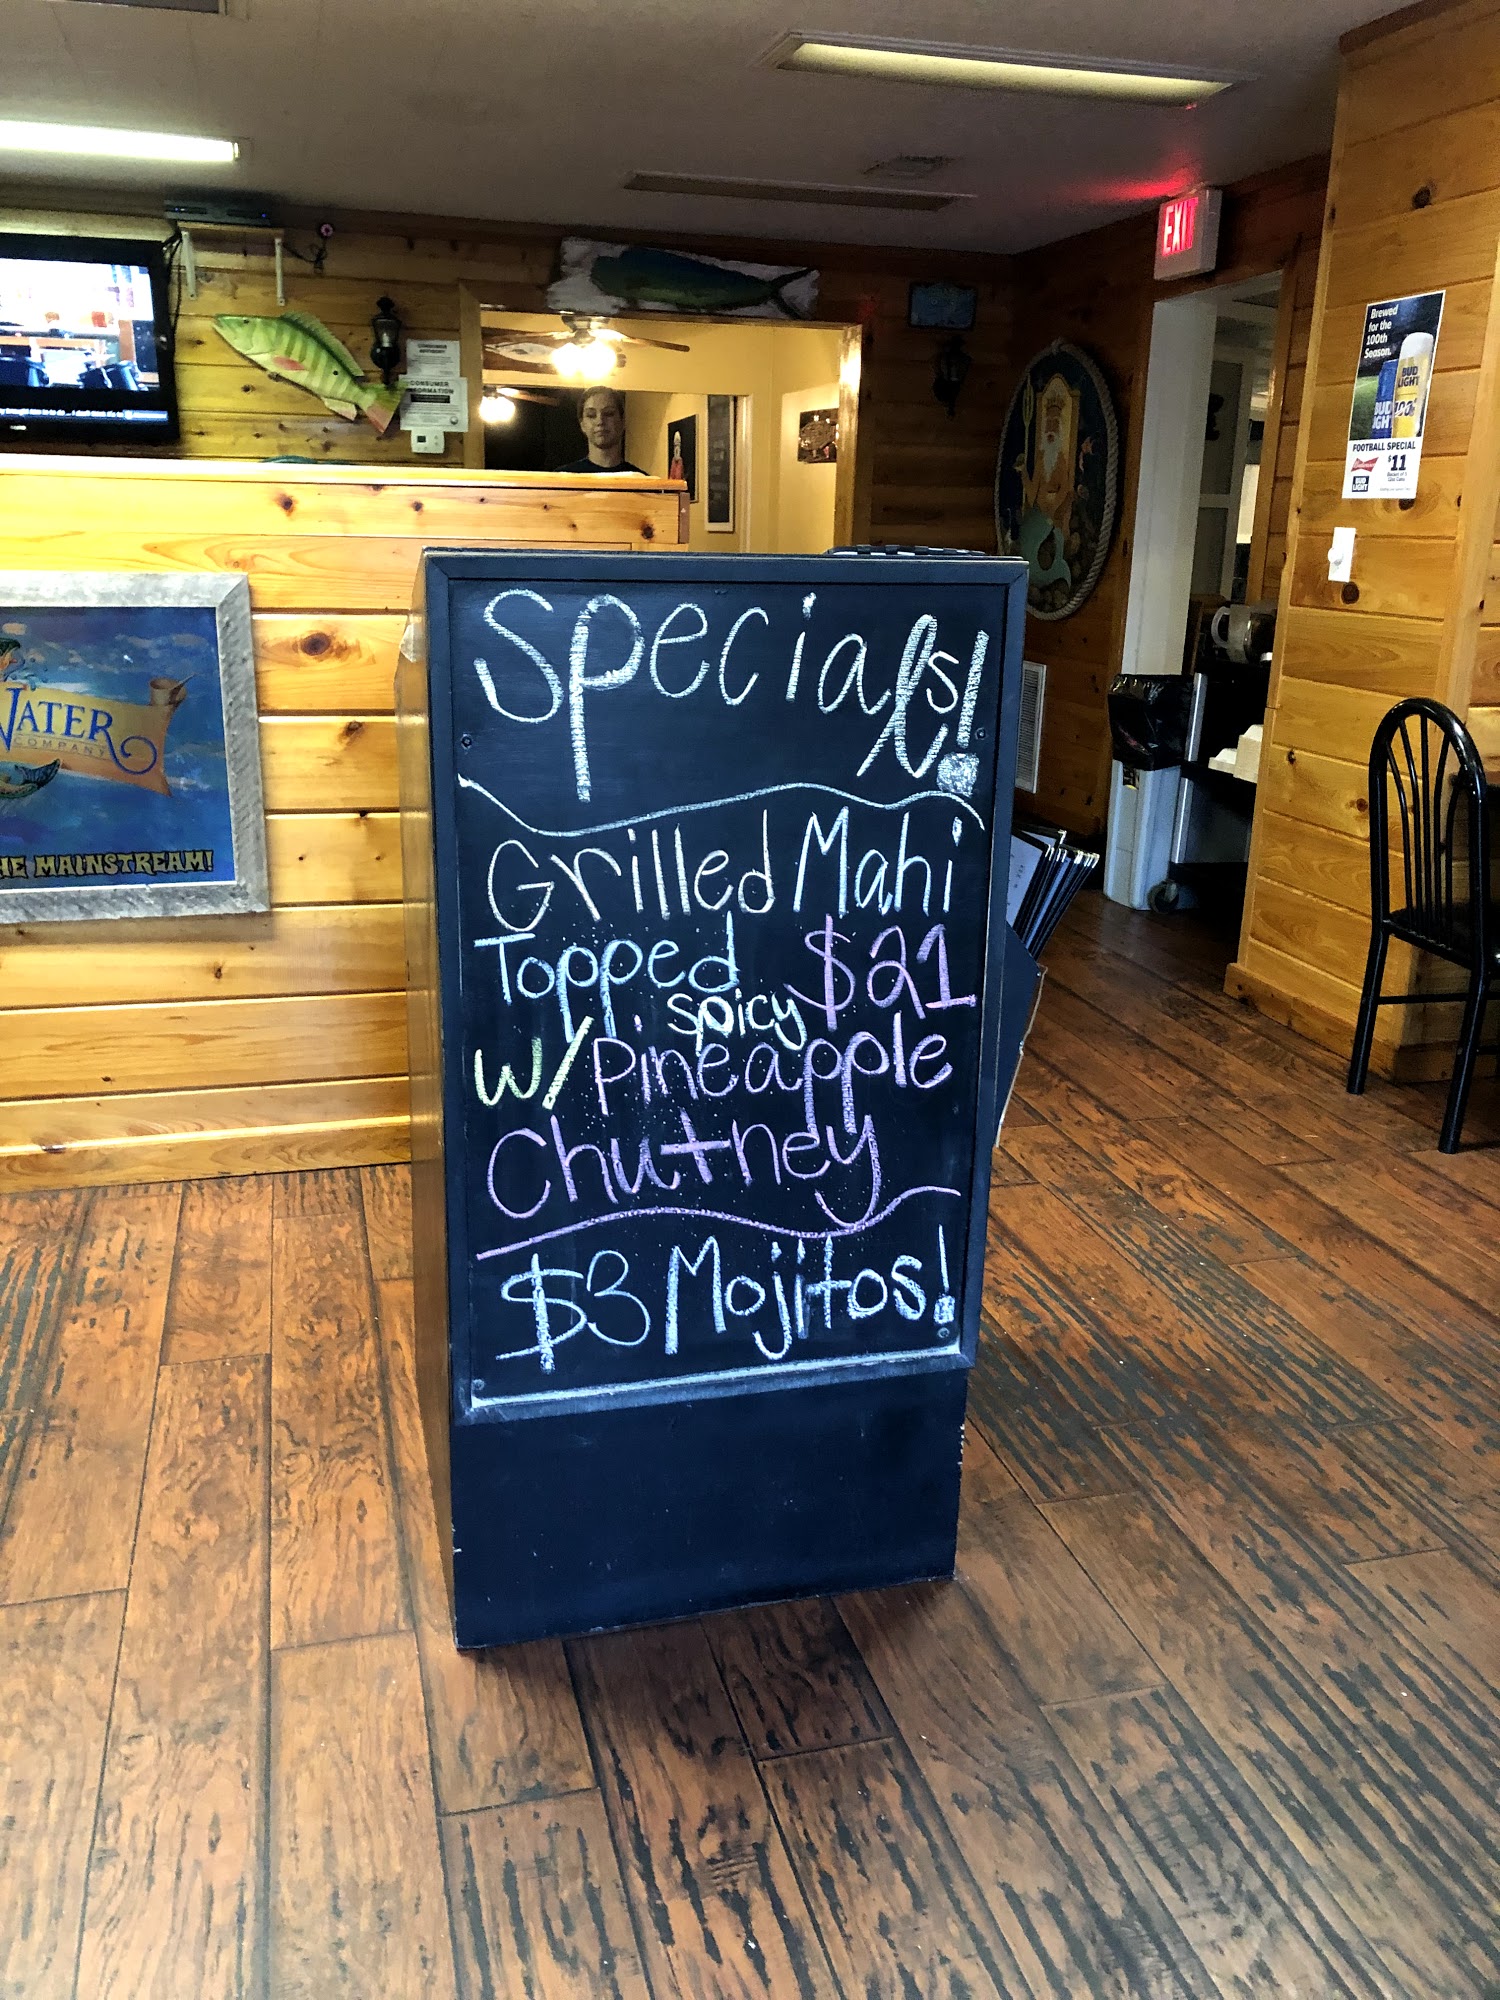 Specials!
Grilled Mahi
Topped $21
spicy
w/ Pineapple
Chutney
$3 Mojitos!
EXIT
Brewed
for the
100th
Season.
BUD
LIGHT
100
FOOTBALL SPECIAL
$11
BUD
LIGHT
CONSUMER
CONSUMER
INFORMATION
WATER
COMPANY
HE MAINSTREAM!